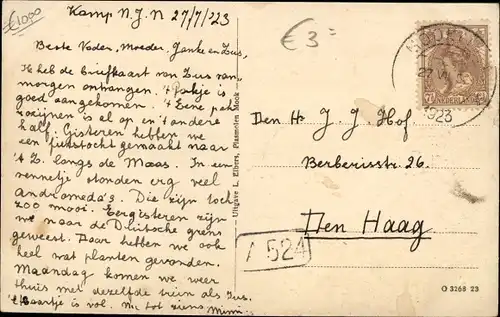 €10,00
Kamp N.J.N 27/7/'23
Beste Vader, Moeder, Janke en Zus,
Ik heb de briefkaart van Zus van-
morgen ontvangen. 't Pakje is
goed aangekomen. 't Eene pak
rozijnen is al op en 't andere
half. Gisteren hebben we
een puttocht gemaakt naar
't Z. langs de Maas. In een
vennetje stonden erg veel
Andromeda's. Die zijn toch
zoo mooi. Eergisteren zijn
we naar de Duitsche grens
geweest. Daar hebben we ook
heel wat planten gevonden.
Maandag komen we weer
thuis met dezelfde trein als Zus.
't Kaartje is vol. Nu tot ziens
Uitgave L. Elbers, Plasmolen Mook
€ 3=
MOOK
27 VII
1923
7½
NEDERLAND
Den Hr J. J. Hof
Berberisstr. 26.
Den Haag
A 524
O 3268 23